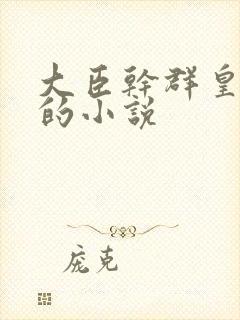 大臣幹群皇
的小說
庞克